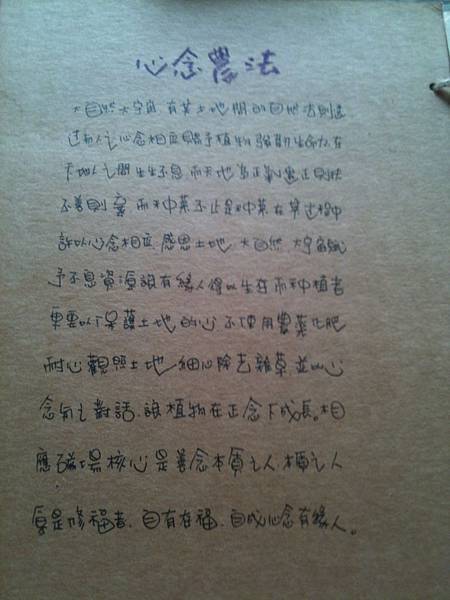 心念農法
大自然大宇宙有其土地間的自地法則透
過而人之心念相應賜予植物強韌生命力在
天地人之間生生不息而天地為正氣惠正則扶
不善則棄而種菜不止是種菜在其過程中
許以心念相應感恩土地大自然大宇宙賦
予不息資源讓有緣人得以生存而種植者
更要以保護土地的心不使用農藥化肥
耐心觀照土地細心除去雜草並以心
念句之對話讓植物在正念下成長。相
應磁場核心是善念本質之人種之人
真是修福者、自有在福、自成心念有緣人。